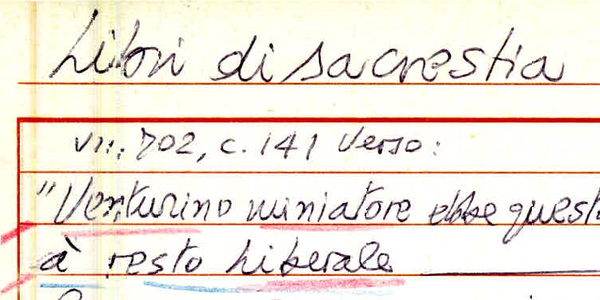 Libri di sacrestia
VII, 702, c. 141 verso:
"Venturino miniatore ebbe quest
à resto Liberale